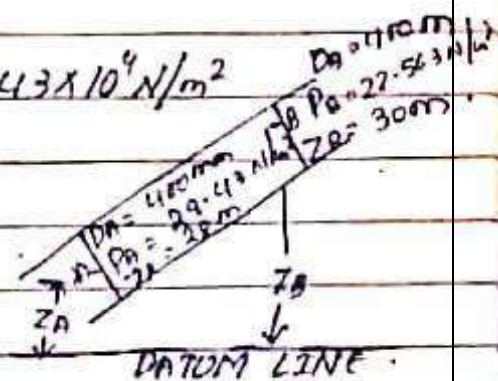 43×10⁴ N/m²
DB = 400m
PB = 22.563 N/m²
ZB = 30m.
DA = 400mm
PA = 39.43 N/m²
ZA = 28m
ZA
ZB
DATUM LINE.